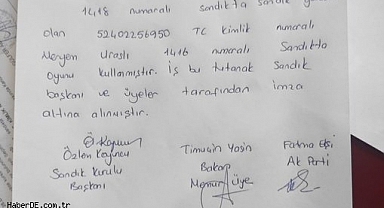 14,18 numaralı sandıkta sandık
olan 52402256950 TC kimlik numaralı
Meryem Uraslı 1416 numaralı Sandıkta
Oyunu kullanmıştır. İş bu tutanak Sandık
başkanı ve üyeler tarafından imza
altına alınmıştır.
Özlen Timuçin Yasin Fatma Ekşi
Sandık Kurulu Bakap Ak Parti
Başkanı Memur Üye
HaberDE.com.tr